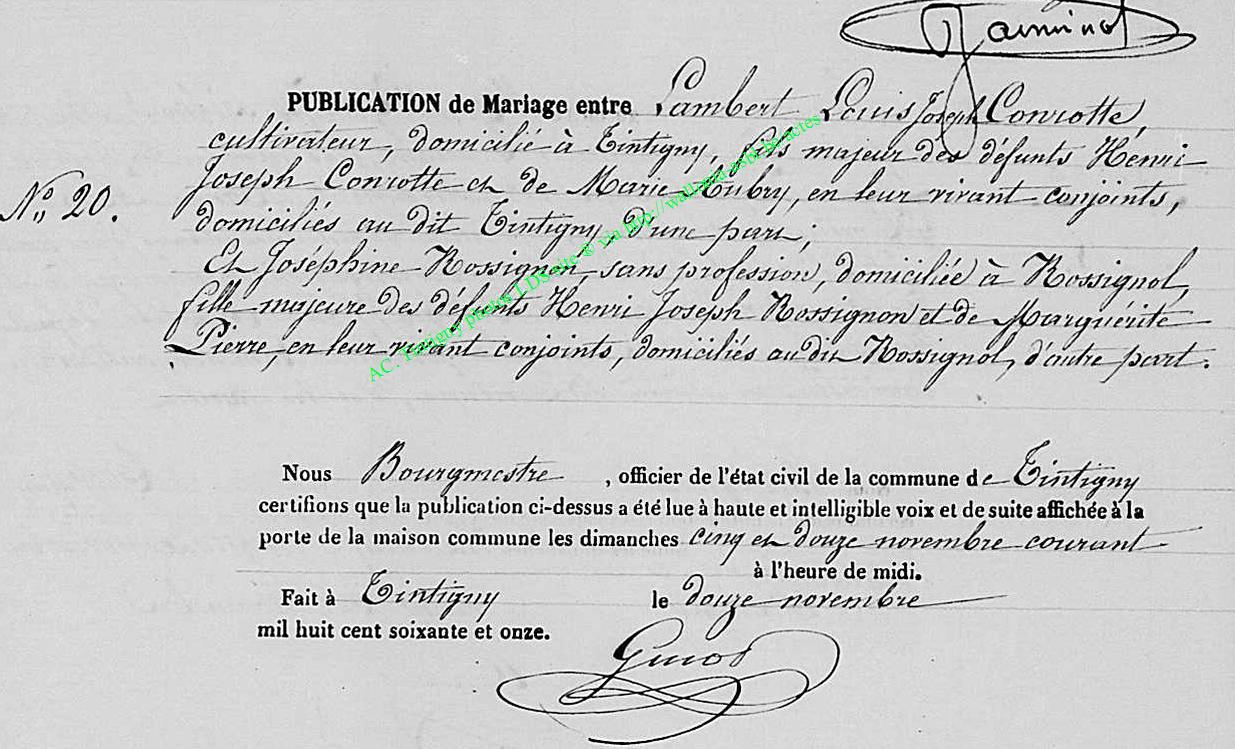 PUBLICATION de Mariage entre Lambert Louis Joseph Conrotte,
cultivateur, domicilié à Tintigny, fils majeur des défunts Henri
Joseph Conrotte et de Marie Aubry, en leur vivant conjoints,
N° 20.
domiciliés au dit Tintigny, d'une part;
Et Joséphine Rossignon sans profession, domiciliée à Rossignol,
fille majeure des défunts Henri Joseph Rossignon et de Marguérite
Pierre, en leur vivant conjoints, domiciliés au dit Rossignol, d'autre part.
AC. Tintigny photos LDSsite ® via http://wallonia-asbl.be/actes
Nous Bourgmestre, officier de l'état civil de la commune de Tintigny
certifions que la publication ci-dessus a été lue à haute et intelligible voix et de suite affichée à la
porte de la maison commune les dimanches cinq et douze novembre courant
à l'heure de midi.
Fait à Tintigny le douze novembre
mil huit cent soixante et onze.